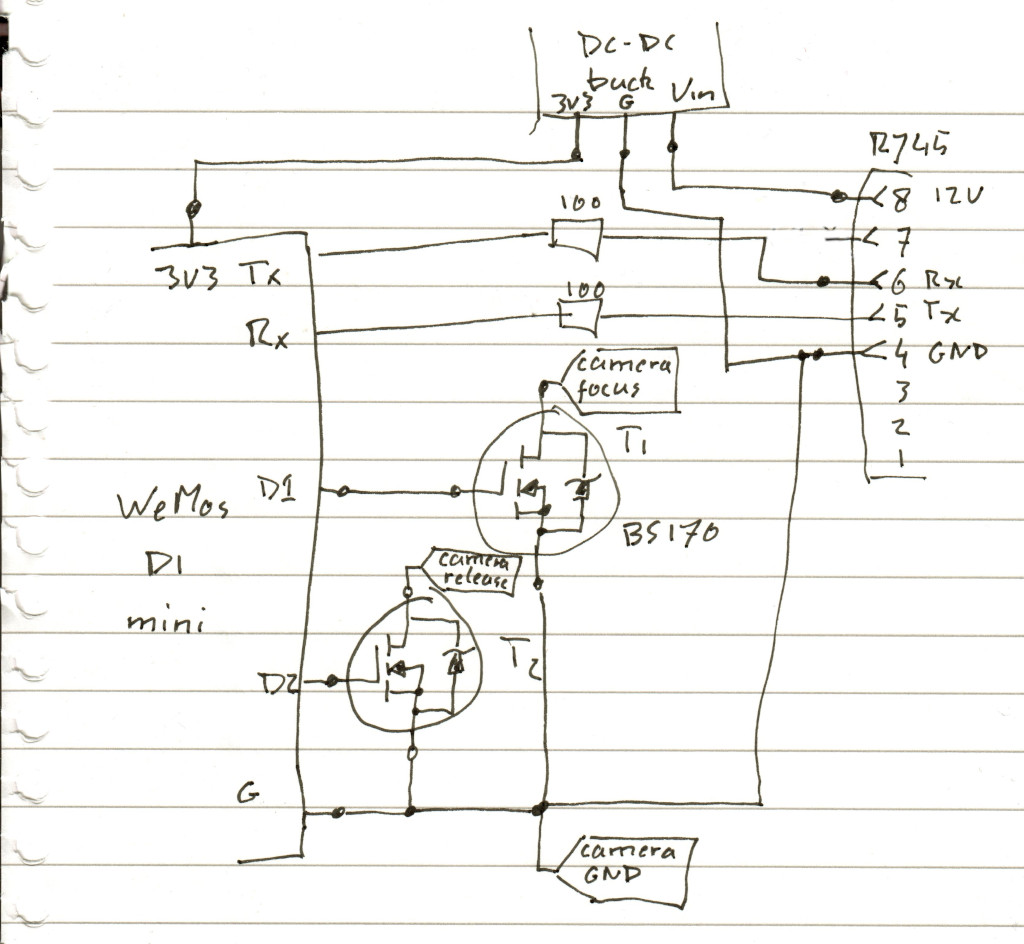 DC-DC
buck
3V3 G Vin
RJ45
8 12V
7
6 Rx
5 Tx
4 GND
3
2
1
100
100
3V3 Tx
Rx
camera
focus
T1
D1
BS170
WeMos
D1
mini
camera
release
T2
D2
G
camera
GND